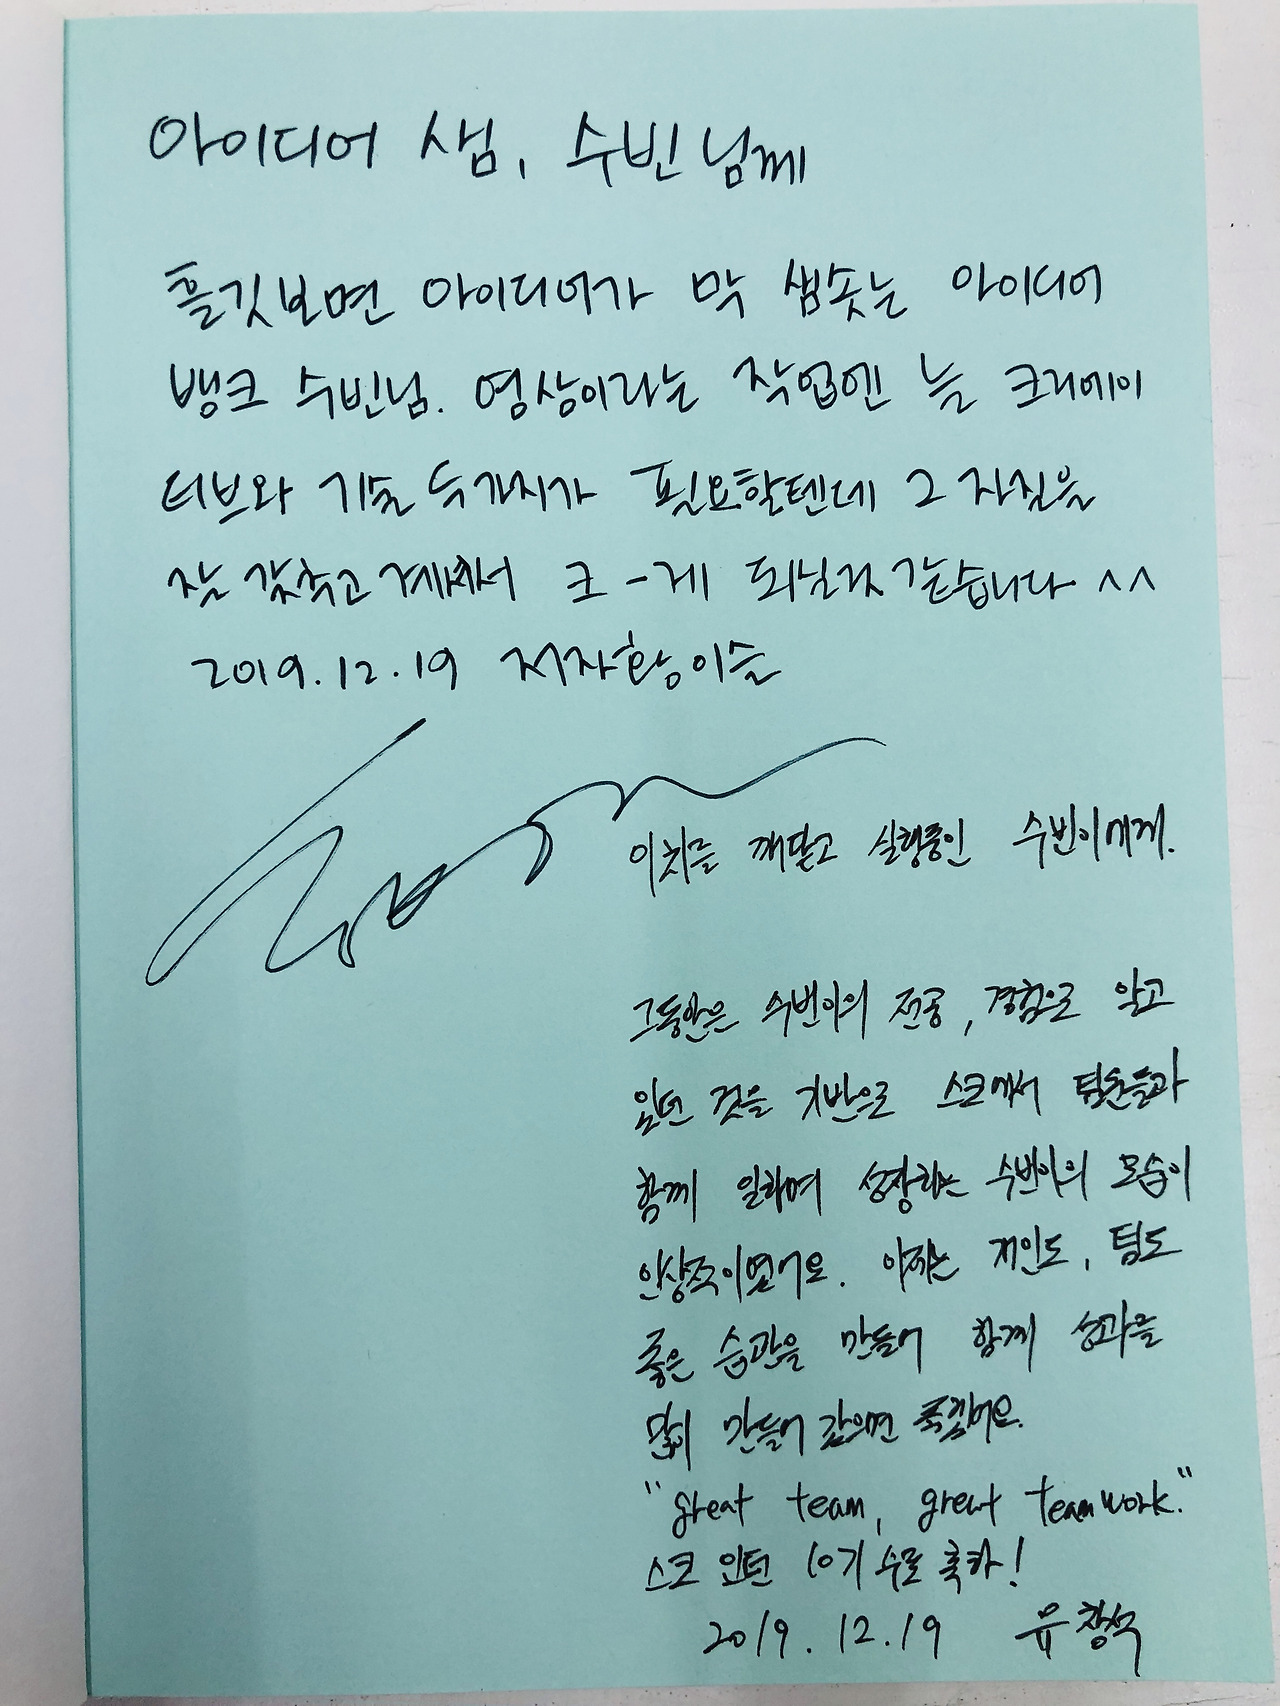 아이디어 샘, 수빈님께
흘깃보면 아이디어가 막 샘솟는 아이디어
뱅크 수빈님. 영상이라는 작업엔 늘 크리에이
티브와 기술 두가지가 필요할텐데 그 자질을
잘 갖추고 계셔서 크-게 되실것 같습니다 ^^
2019.12.19 저자 황이슬
이치를 깨닫고 실행중인 수빈이에게.
그동안은 수빈이의 전공, 경험으로 알고
있던 것을 기반으로 스크에서 팀원들과
함께 일하며 성장하는 수빈이의 모습이
인상적이었어요. 이제는 개인도, 팀도
좋은 습관을 만들어 함께 성과를
많이 만들어 갔으면 좋겠어요.
"great team, great teamwork."
스크 인턴 10기 수료 축하!
2019.12.19 유창석